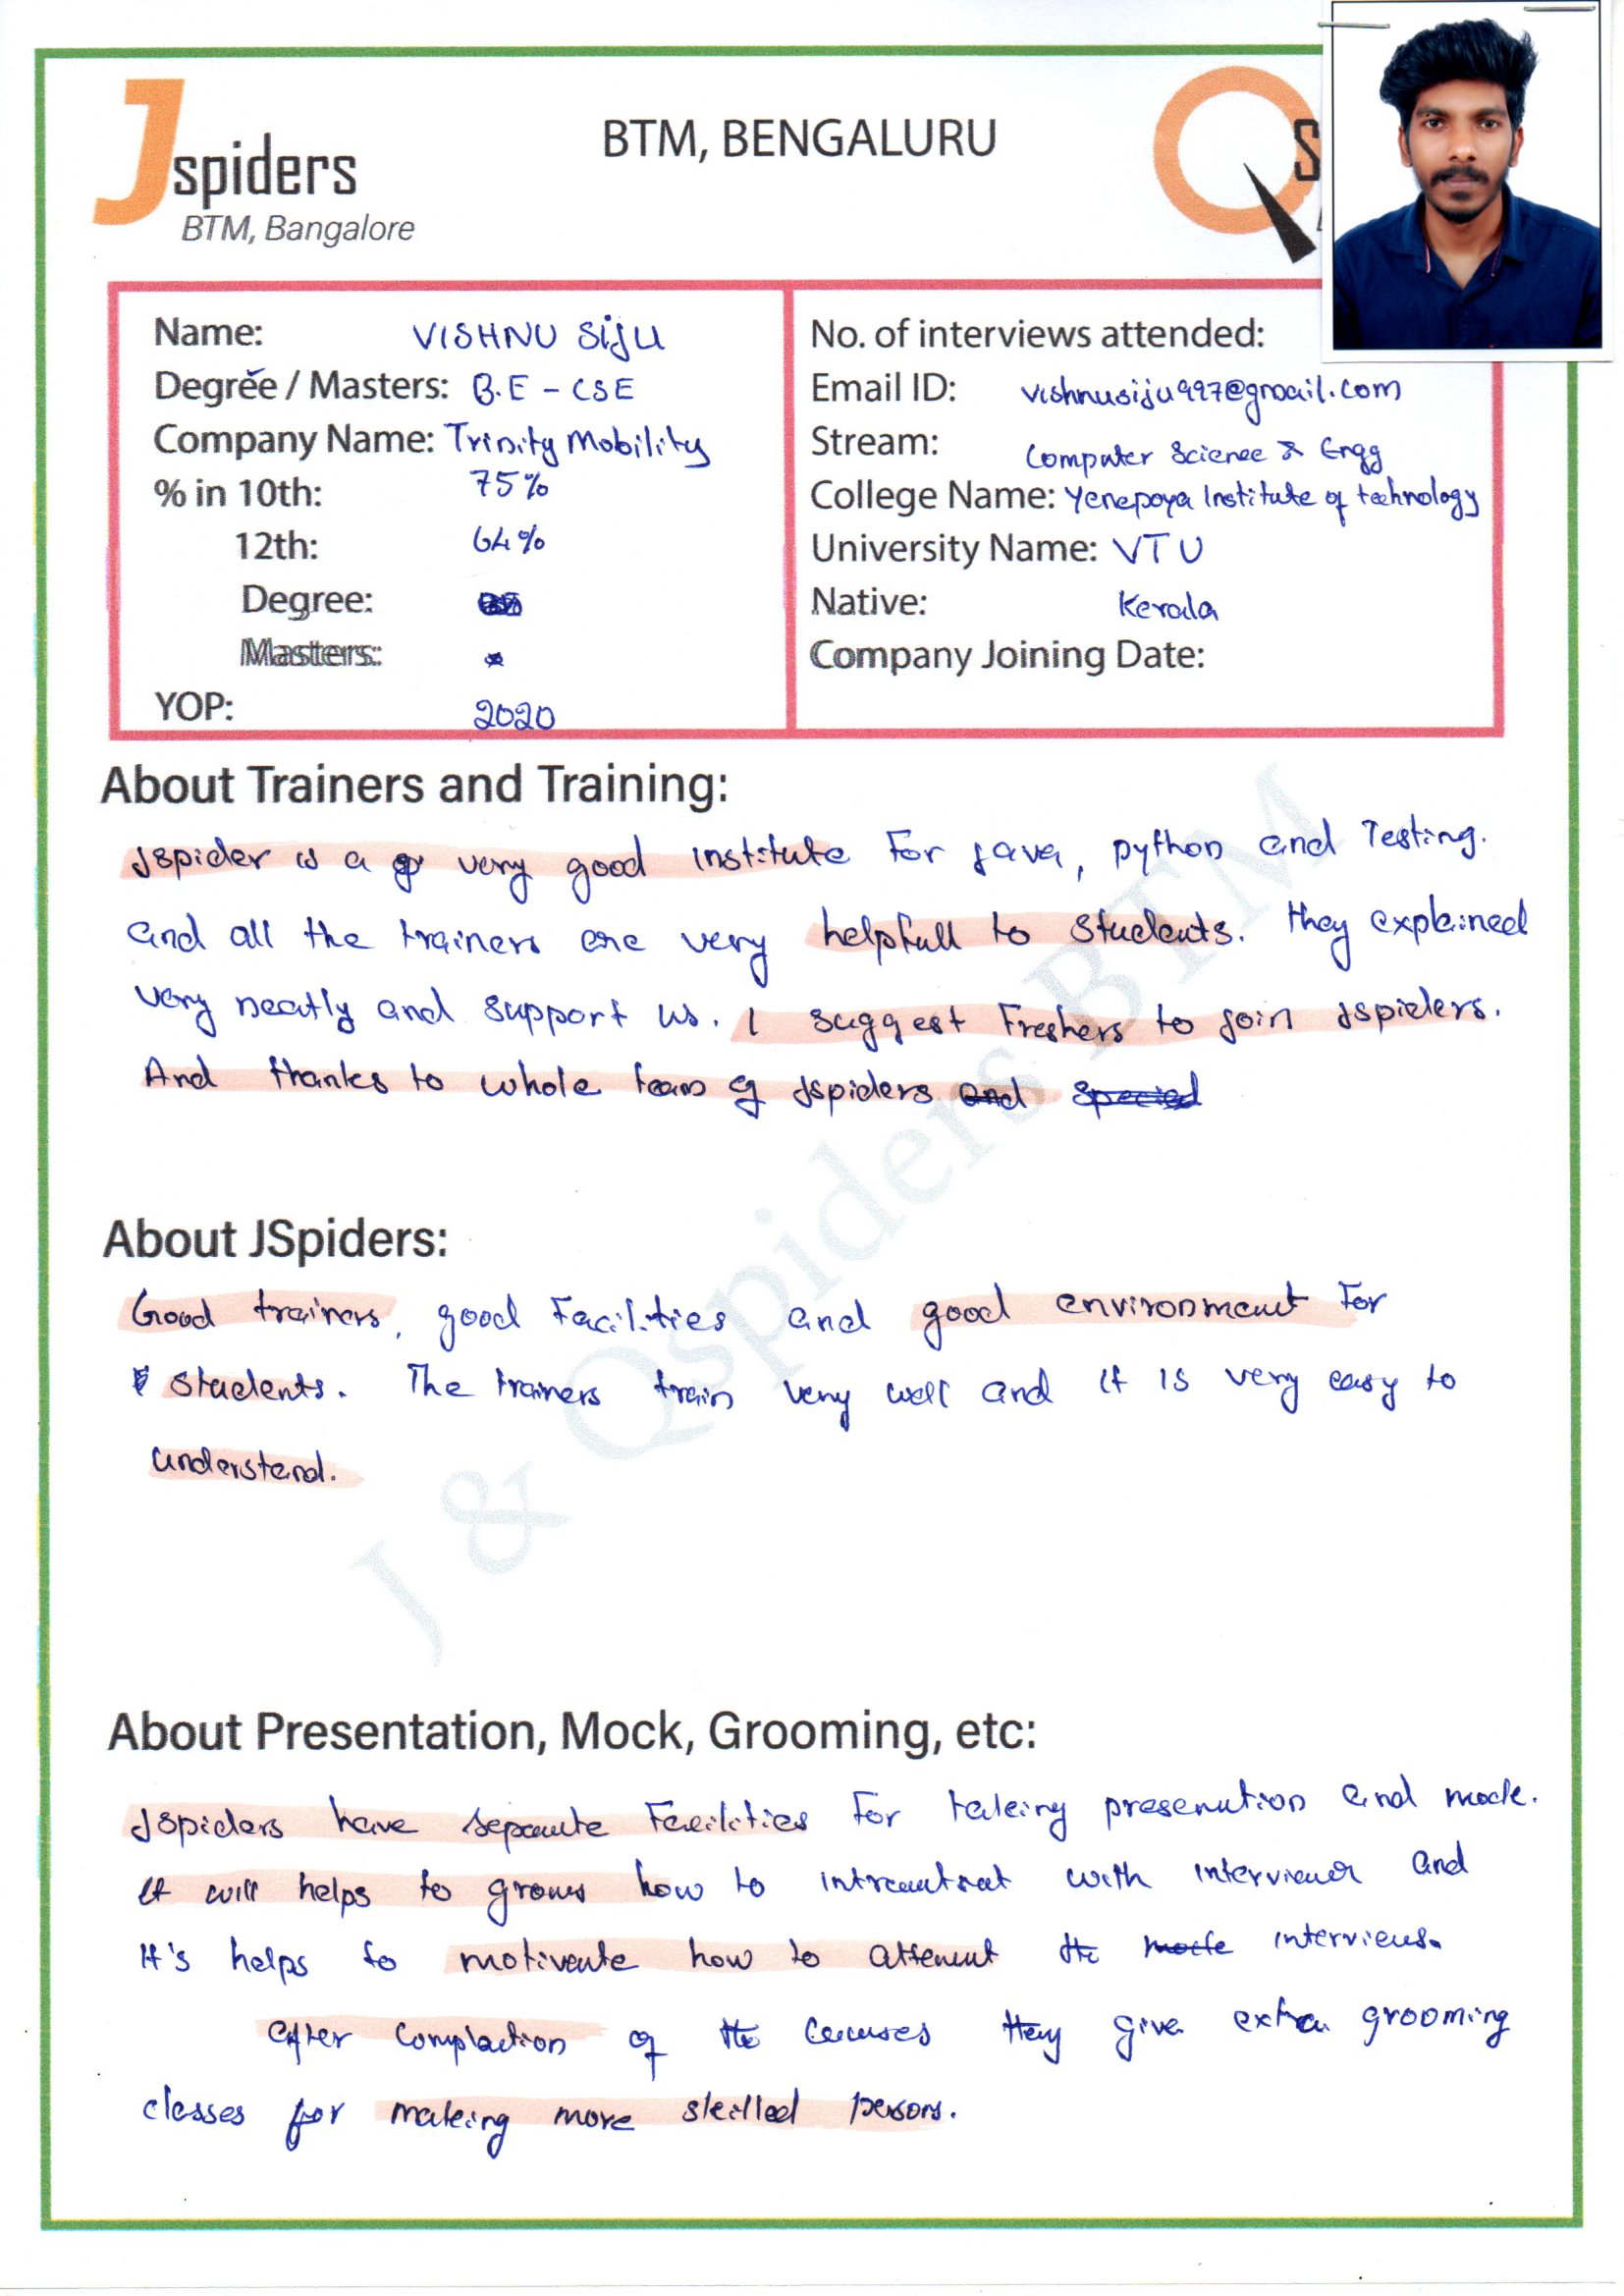 Jspiders
BTM, Bangalore
BTM, BENGALURU
Name: VISHNU SiJU
Degree / Masters: B.E - CSE
Company Name: Trinity Mobility
% in 10th: 75%
12th: 64%
Degree:
Masters:
YOP: 2020
No. of interviews attended:
Email ID: vishnusiju997@gmail.com
Stream: Computer Science & Engg
College Name: Yenepoya Institute of technology
University Name: VTU
Native: Kerala
Company Joining Date:
About Trainers and Training:
Jspider is a very good institute For Java, python and Testing.
and all the trainers are very helpfull to students. they explained
very neatly and support us. I suggest Freshers to join Jspiders.
And thanks to whole team of Jspiders
About JSpiders:
Good trainers, good Facilities and good environment For
students. The trainers train very well and it is very easy to
understand.
J & Qspiders BTM
About Presentation, Mock, Grooming, etc:
Jspiders have separate Facilities For taking presenution and mock.
it will helps to how to with interviewer and
It's helps to how to the interviews.
after of the they give extra grooming
classes for making more skilled persons.